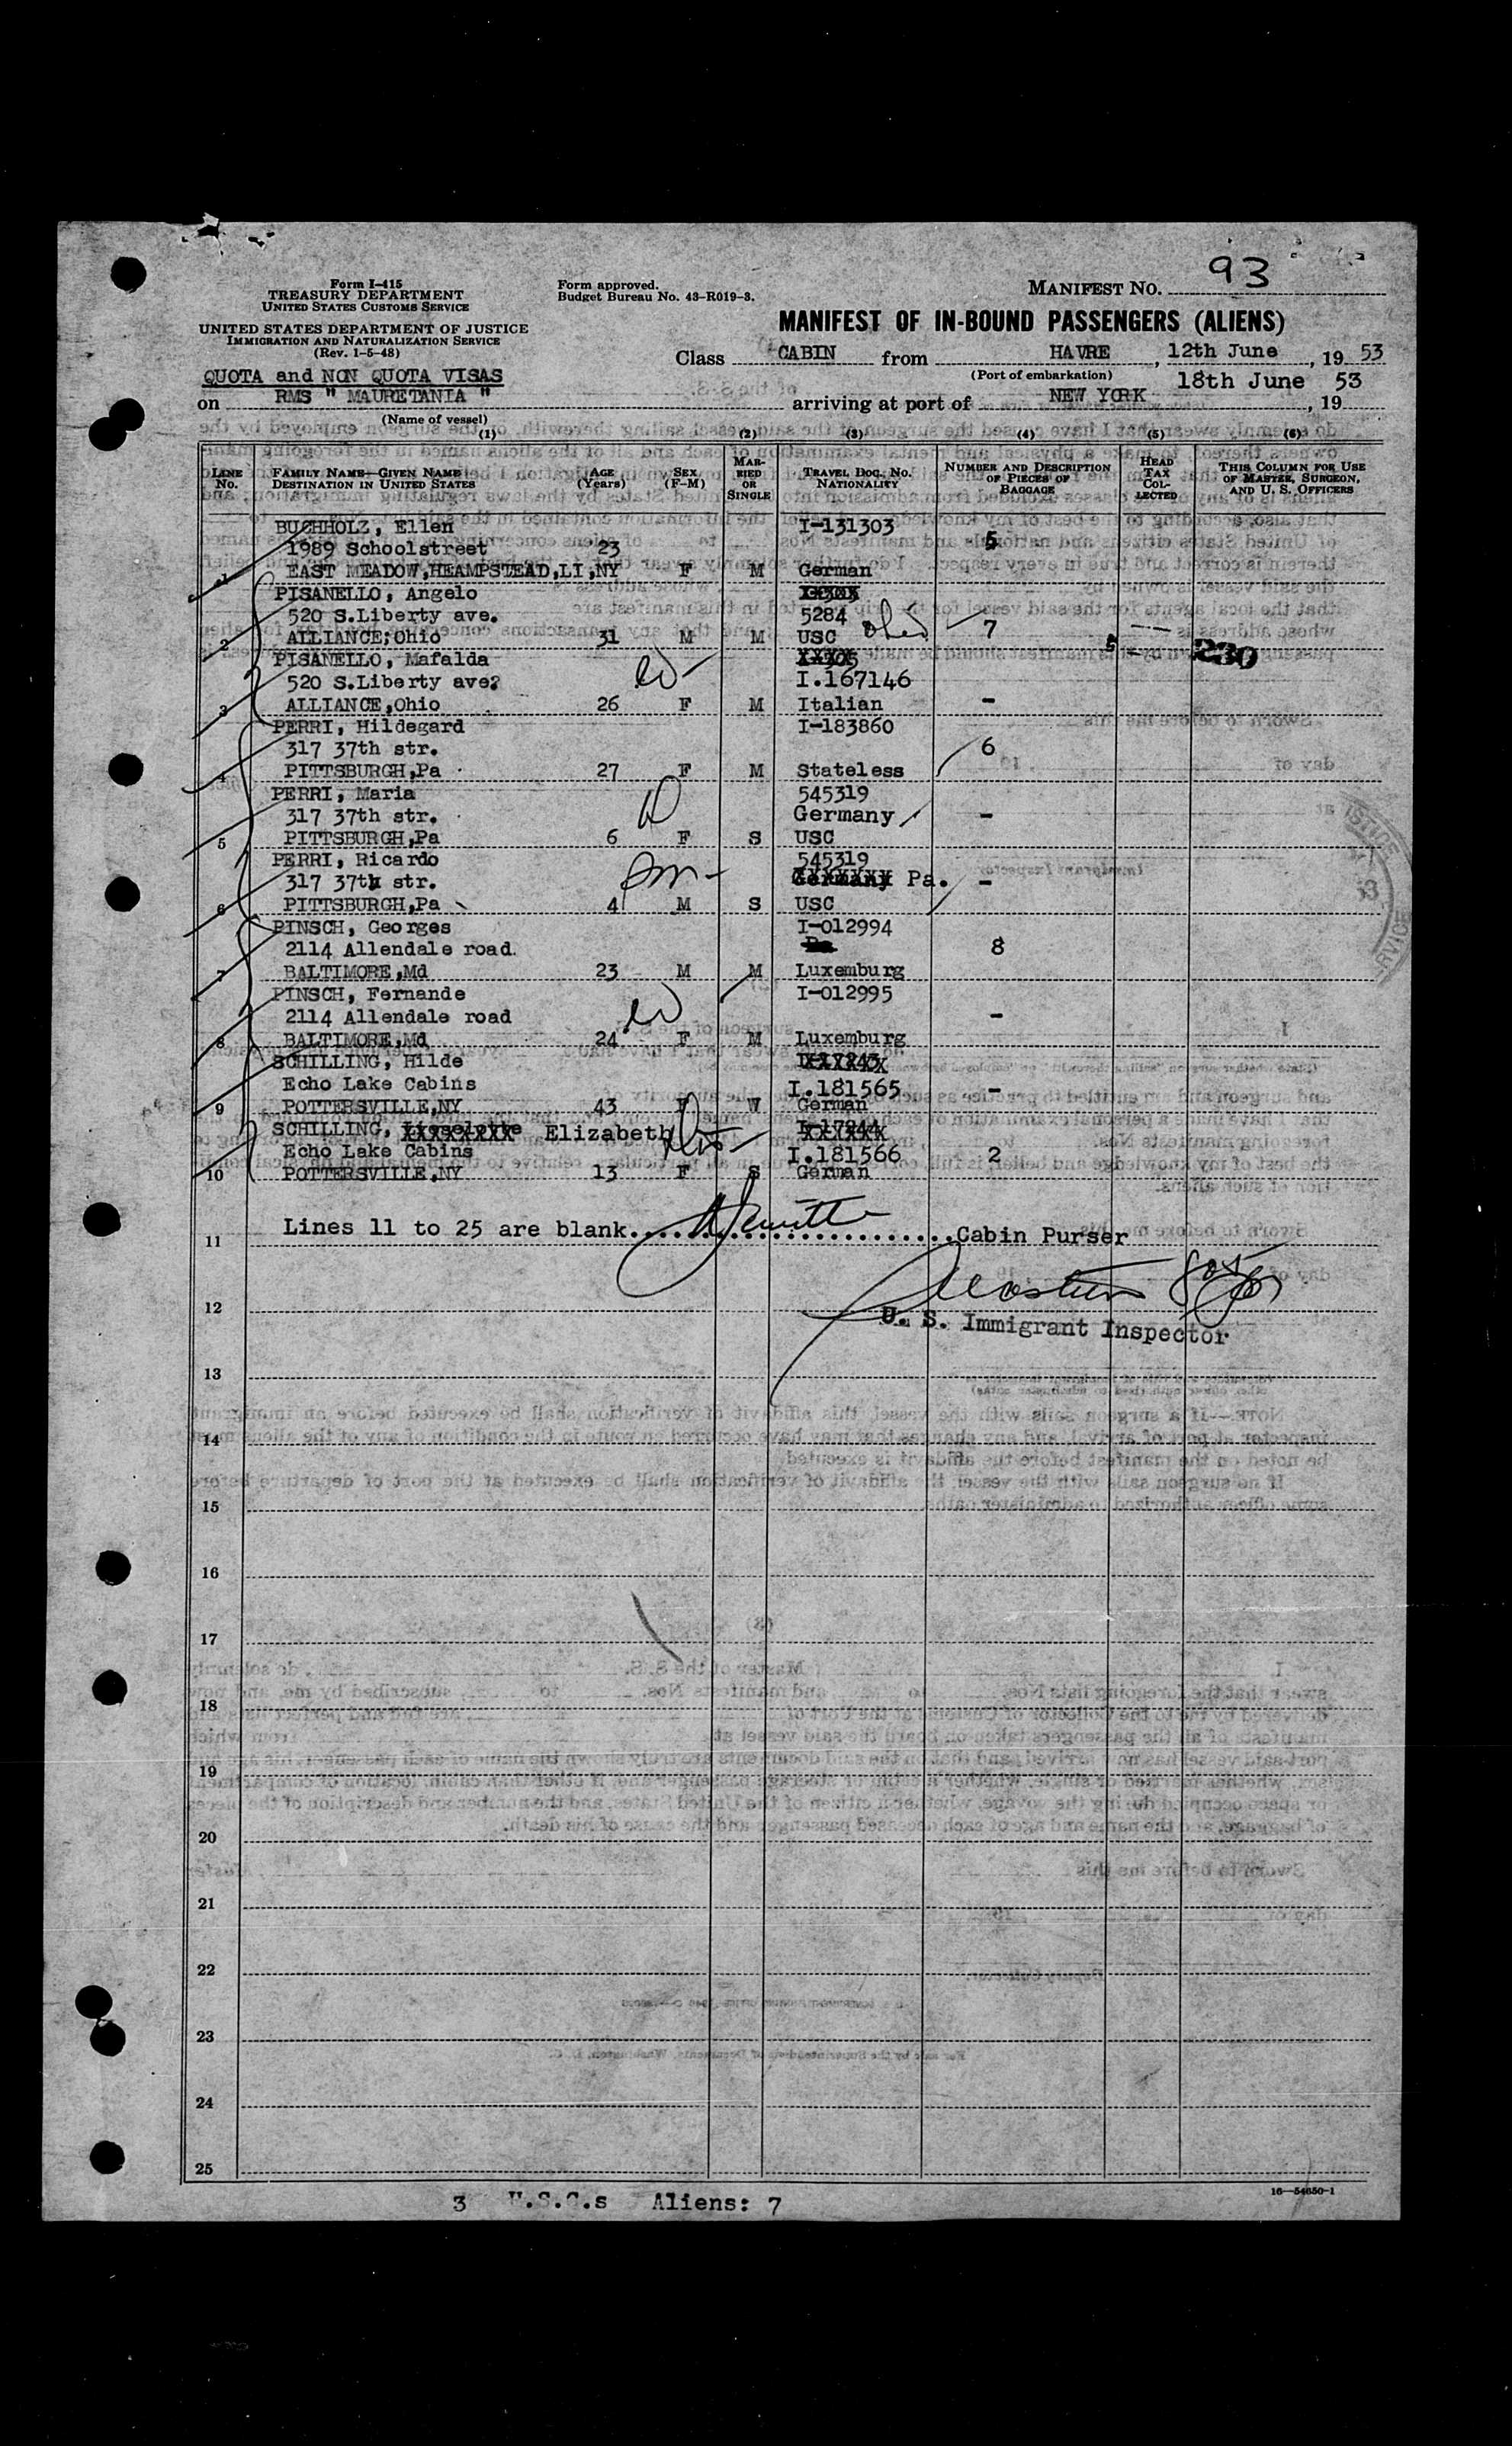 93
Form I-415
TREASURY DEPARTMENT
UNITED STATES CUSTOMS SERVICE
Form approved.
Budget Bureau No. 43-R019-3.
MANIFEST NO.
UNITED STATES DEPARTMENT OF JUSTICE
IMMIGRATION AND NATURALIZATION SERVICE
(Rev. 1-5-48)
MANIFEST OF IN-BOUND PASSENGERS (ALIENS)
Class CABIN from HAVRE, 12th June, 19 53
(Port of embarkation)
QUOTA and NON QUOTA VISAS
18th June 53
on RMS " MAURETANIA " arriving at port of NEW YORK, 19
(Name of vessel)
(1) (2) (3) (4) (5) (6)
LINE No. FAMILY NAME—GIVEN NAME DESTINATION IN UNITED STATES AGE (Years) SEX (F-M) MARRIED OR SINGLE TRAVEL DOC. NO. NATIONALITY NUMBER AND DESCRIPTION OF PIECES OF BAGGAGE HEAD TAX COLLECTED THIS COLUMN FOR USE OF MASTER, SURGEON, AND U. S. OFFICERS
BUCHHOLZ, Ellen I-131303
1989 Schoolstreet 23 5
1 EAST MEADOW,HEAMPSTEAD,LI,NY F M German
PISANELLO, Angelo
520 S.Liberty ave. 5284
2 ALLIANCE;Ohio 31 M M USC 7
PISANELLO, Mafalda 230
520 S.Liberty ave? I.167146
3 ALLIANCE,Ohio 26 F M Italian -
PERRI, Hildegard I-183860
317 37th str. 6
4 PITTSBURGH,Pa 27 F M Stateless
PERRI, Maria 545319
317 37th str. Germany -
5 PITTSBURGH,Pa 6 F S USC
PERRI, Ricardo 545319
317 37th str. Germany Pa. -
6 PITTSBURGH,Pa 4 M S USC
PINSCH, Georges I-012994
2114 Allendale road. 8
7 BALTIMORE,Md 23 M M Luxemburg
PINSCH, Fernande I-012995
2114 Allendale road -
8 BALTIMORE,Md 24 F M Luxemburg
SCHILLING, Hilde
Echo Lake Cabins I.181565 -
9 POTTERSVILLE,NY 43 F W German
SCHILLING, Elizabeth
Echo Lake Cabins I.181566 2
10 POTTERSVILLE,NY 13 F S German
11 Lines 11 to 25 are blank. Cabin Purser
12
U. S. Immigrant Inspector
13
14
15
16
17
18
19
20
21
22
23
24
25
16—54650-1
3 U.S.C.s Aliens: 7